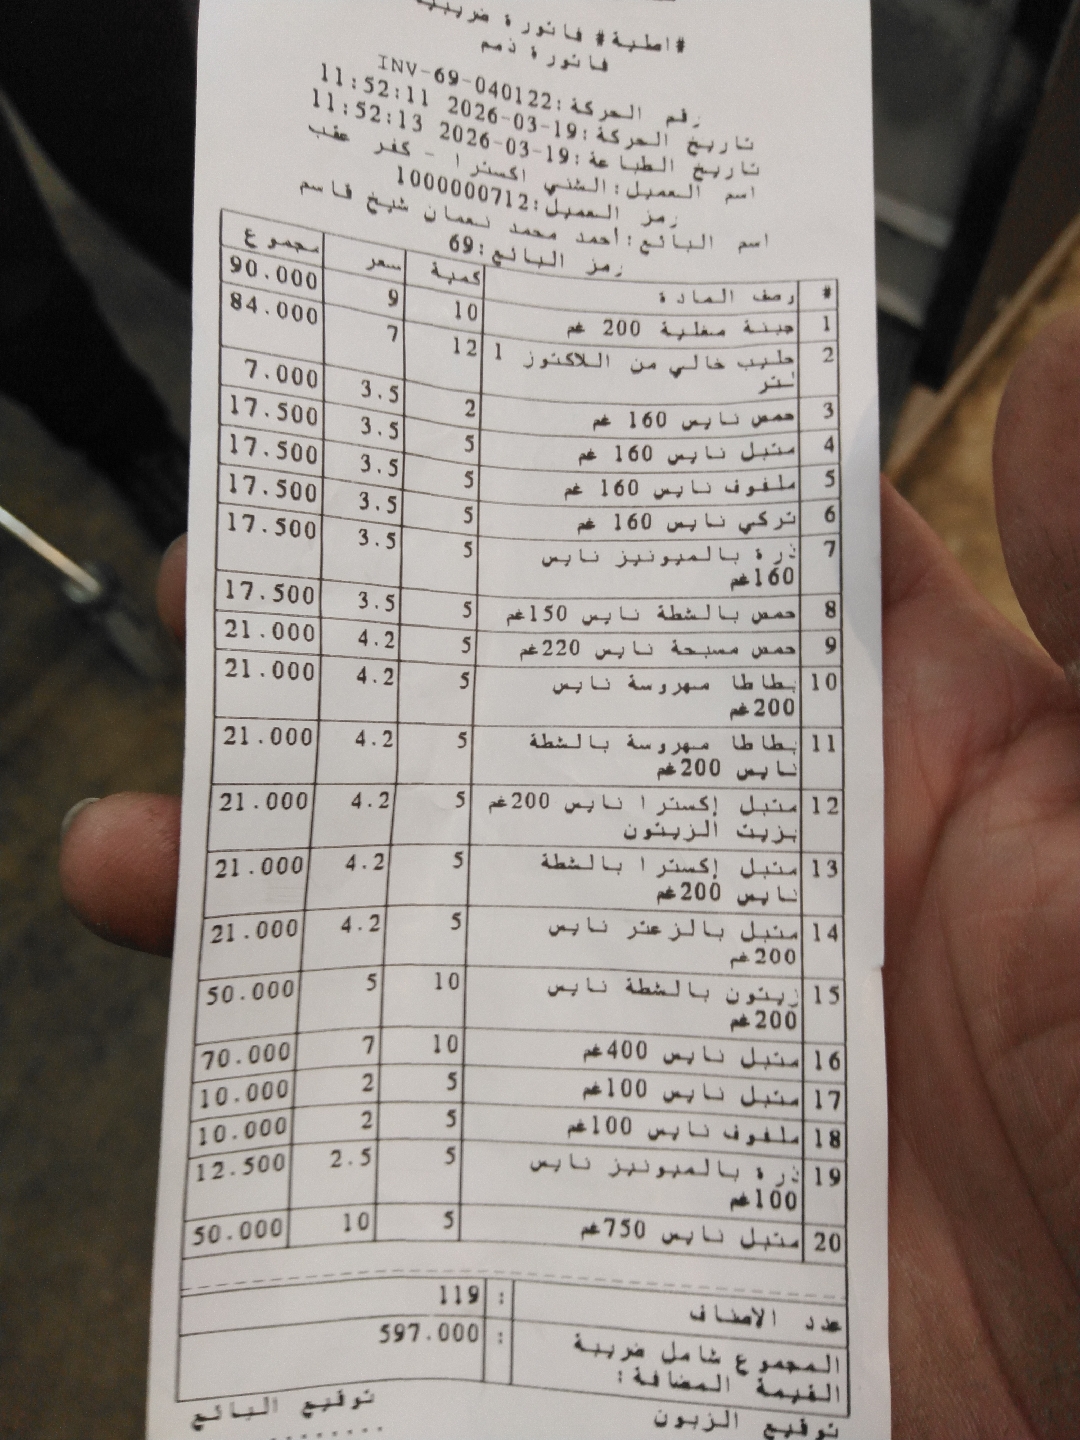 #اصلية# فاتورة ضريبية
فاتورة ذمم
رقم الحركة:INV-69-040122
تاريخ الحركة:2026-03-19 11:52:11
تاريخ الطباعة:2026-03-19 11:52:13
اسم العميل:الشني اكسترا - كفر عقب
رمز العميل:1000000712
اسم البائع:أحمد محمد نعمان شيخ قاسم
رمز البائع:69
# وصف المادة كمية سعر مجموع
1 جبنة مغلية 200 غم 10 9 90.000
2 حليب خالي من اللاكتوز 1 12 7 84.000
لتر
3 حمص نايس 160 غم 2 3.5 7.000
4 متبل نايس 160 غم 5 3.5 17.500
5 ملفوف نايس 160 غم 5 3.5 17.500
6 تركي نايس 160 غم 5 3.5 17.500
7 ذرة بالميونيز نايس 5 3.5 17.500
160غم
8 حمص بالشطة نايس 150غم 5 3.5 17.500
9 حمص مسبحة نايس 220غم 5 4.2 21.000
10 بطاطا مهروسة نايس 5 4.2 21.000
200غم
11 بطاطا مهروسة بالشطة 5 4.2 21.000
نايس 200غم
12 متبل إكسترا نايس 200غم 5 4.2 21.000
بزيت الزيتون
13 متبل إكسترا بالشطة 5 4.2 21.000
نايس 200غم
14 متبل بالزعتر نايس 5 4.2 21.000
200غم
15 زيتون بالشطة نايس 10 5 50.000
200غم
16 متبل نايس 400غم 10 7 70.000
17 متبل نايس 100غم 5 2 10.000
18 ملفوف نايس 100غم 5 2 10.000
19 ذرة بالميونيز نايس 5 2.5 12.500
100غم
20 متبل نايس 750غم 5 10 50.000
عدد الاصناف : 119
المجموع شامل ضريبة : 597.000
القيمة المضافة:
توقيع الزبون توقيع البائع